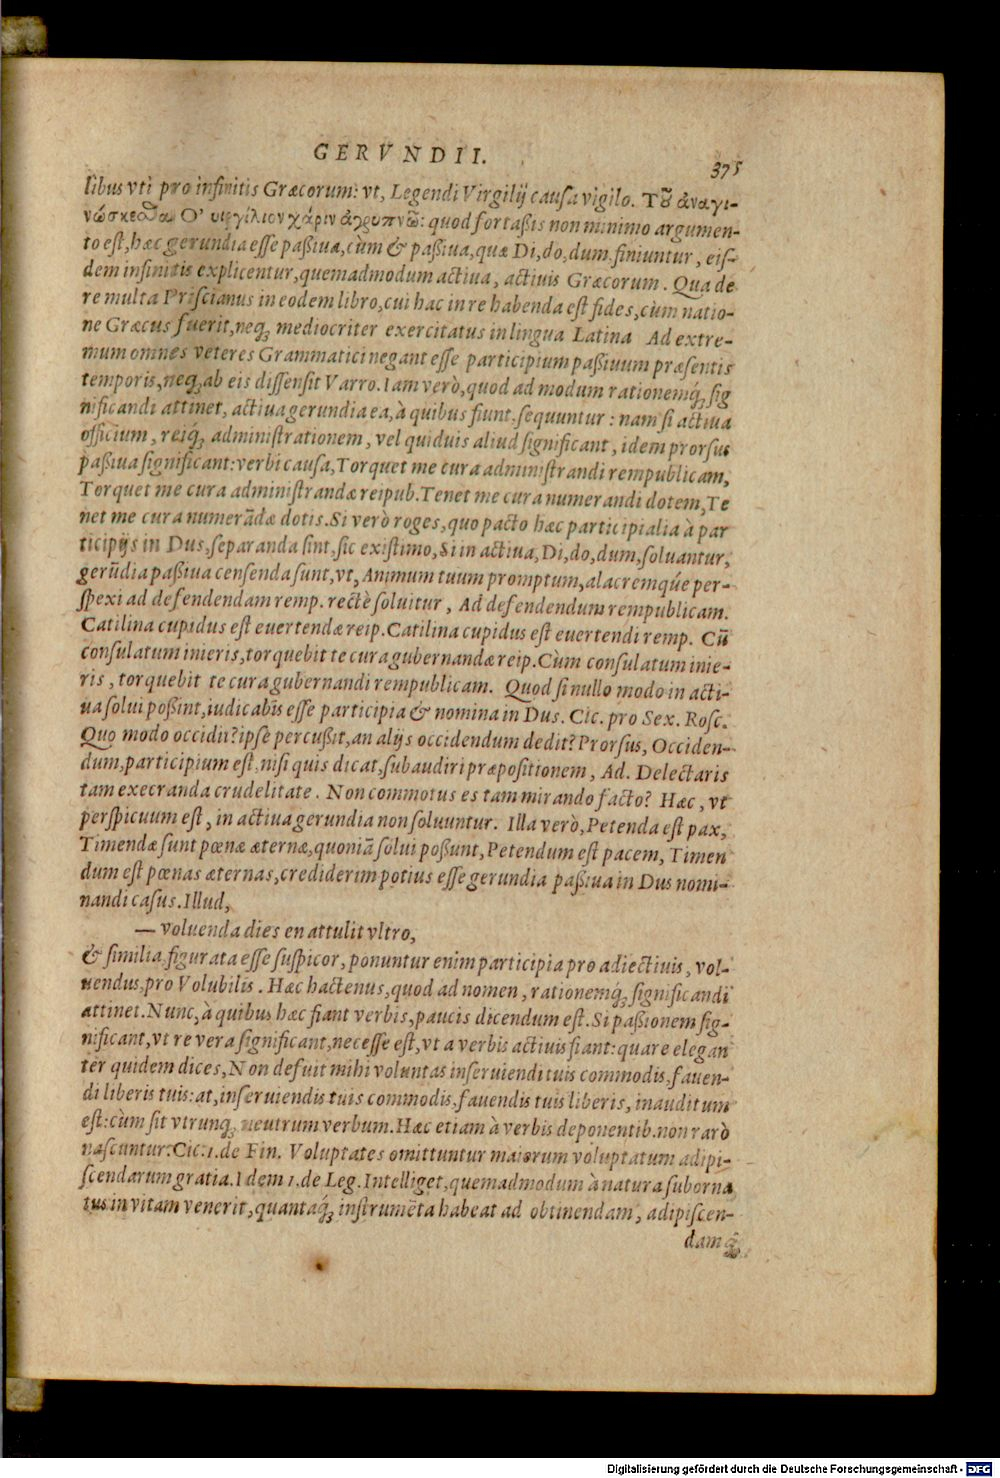 GERVNDII.
375
libus vti pro infinitis Græcorum: vt, Legendi Virgilij causa vigilo. Τοῦ ἀναγι-
νώσκεσθαι Ο' υιργίλιον χάριν ἀγρυπνῶ: quod fortaßis non minimo argumen-
to est, hæc gerundia esse paßiua, cùm & paßiua, quæ Di, do, dum finiuntur, eis-
dem infinitis explicentur, quemadmodum actiua, actiuis Græcorum. Qua de
re multa Priscianus in eodem libro, cui hac in re habenda est fides, cùm natio-
ne Græcus fuerit, neq; mediocriter exercitatus in lingua Latina Ad extre-
mum omnes veteres Grammatici negant esse participium paßiuum præsentis
temporis, neq; ab eis dissensit Varro. Iam verò, quod ad modum rationemq́; sig
nificandi attinet, actiua gerundia ea, à quibus fiunt, sequuntur: nam si actiua
officium, reiq́; administrationem, vel quiduis aliud significant, idem prorsus
paßiua significant: verbi causa, Torquet me cura administrandi rempublicam,
Torquet me cura administrandæ reipub. Tenet me cura numerandi dotem, Te
net me cura numerādæ dotis. Si verò roges, quo pacto hæc participialia à par
ticipijs in Dus, separanda sint, sic existimo, Si in actiua, Di, do, dum, soluantur,
gerūdia paßiua censenda sunt, vt, Animum tuum promptum, alacremq́ue per-
spexi ad defendendam remp. rectè soluitur, Ad defendendum rempublicam.
Catilina cupidus est euertendæ reip. Catilina cupidus est euertendi remp. Cū
consulatum inieris, torquebit te cura gubernandæ reip. Cùm consulatum inie-
ris, torquebit te cura gubernandi rempublicam. Quod si nullo modo in acti-
ua solui poßint, iudicabis esse participia & nomina in Dus. Cic. pro Sex. Rosc.
Quo modo occidit? ipse percußit, an alijs occidendum dedit? Prorsus, Occiden-
dum, participium est, nisi quis dicat, subaudiri præpositionem, Ad. Delectaris
tam execranda crudelitate. Non commotus es tam mirando facto? Hæc, vt
perspicuum est, in actiua gerundia non soluuntur. Illa verò, Petenda est pax,
Timendæ sunt pœnæ æternæ, quoniā solui poßunt, Petendum est pacem, Timen
dum est pœnas æternas, crediderim potius esse gerundia paßiua in Dus nomi-
nandi casus. Illud,
— voluenda dies en attulit vltro,
& similia, figurata esse suspicor, ponuntur enim participia pro adiectiuis, vol-
uendus, pro Volubilis. Hæc hactenus, quod ad nomen, rationemq́; significandi
attinet. Nunc, à quibus hæc fiant verbis, paucis dicendum est. Si paßionem sig-
nificant, vt re vera significant, necesse est, vt a verbis actiuis fiant: quare elegan
ter quidem dices, Non defuit mihi voluntas inseruiendi tuis commodis, fauen-
di liberis tuis: at, inseruiendis tuis commodis, fauendis tuis liberis, inauditum
est: cùm sit vtrunq; neutrum verbum. Hæc etiam à verbis deponentib. non rarò
nascuntur: Cic: 1. de Fin. Voluptates omittuntur maiorum voluptatum adipi-
scendarum gratia. Idem 1. de Leg. Intelliget, quemadmodum à natura suborna
tus in vitam venerit, quantaq́; instrumēta habeat ad obtinendam, adipiscen-
damq́;
Digitalisierung gefördert durch die Deutsche Forschungsgemeinschaft - DFG